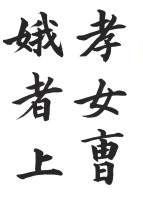 孝女曹
娥者上